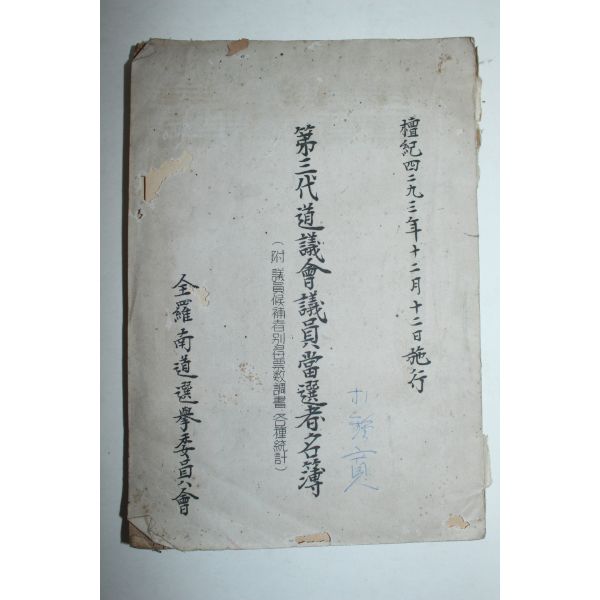 檀紀四二九三年十二月十二日施行
第三代道議會議員當選者名簿
(附 議員候補者別得票數調書 各種統計)
全羅南道選擧委員會